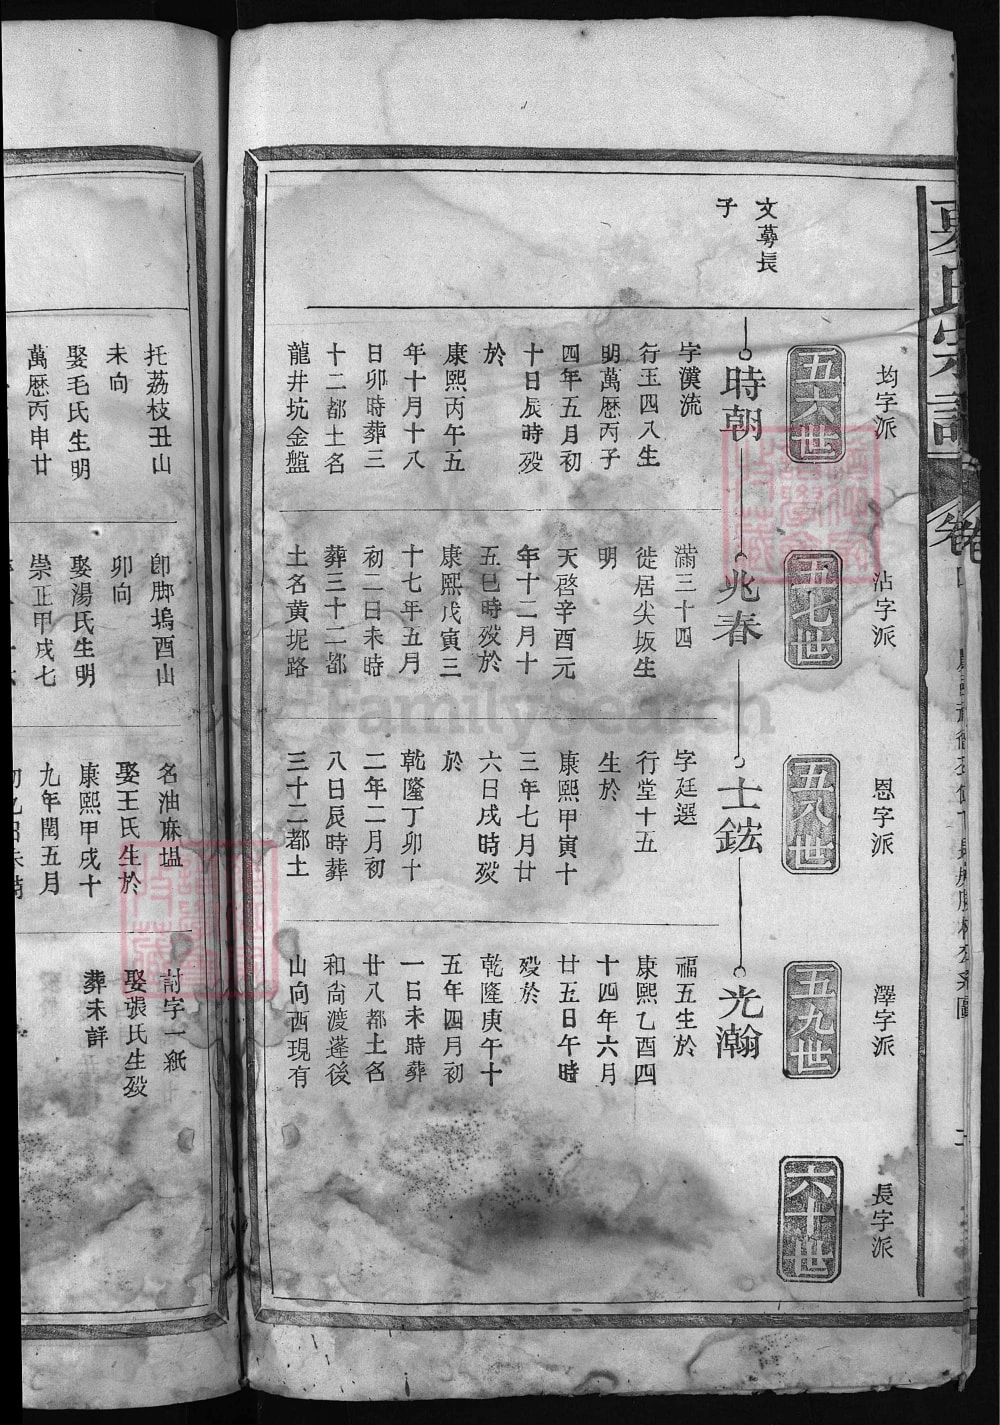 均字派
沾字派
恩字派
澤字派
長字派
五六世
五七世
五八世
五九世
六十世
文蕚長
子
時朝
字漢流
行玉四八生
明萬厯丙子
四年五月初
十日辰時殁
於
康熙丙午五
年十月十八
日卯時葬三
十二都土名
龍井坑金盤
兆春
滿三十四
徙居尖坂生
明
天啓辛酉元
年十二月十
五巳時殁於
康熙戊寅三
十七年五月
初二日未時
葬三十二都
土名黄坭路
士鋐
字廷選
行堂十五
生於
康熙甲寅十
三年七月廿
六日戌時殁
於
乾隆丁卯十
二年二月初
八日辰時葬
三十二都土
光瀚
福五生於
康熙乙酉四
十四年六月
廿五日午時
殁於
乾隆庚午十
五年四月初
一日未時葬
廿八都土名
和尚渡蓬後
山向西現有
托荔枝丑山
未向
娶毛氏生明
萬厯丙申廿
卽脚塢酉山
卯向
娶湯氏生明
崇正甲戌七
名油麻塭
娶王氏生於
康熙甲戌十
九年閏五月
討字一紙
娶張氏生殁
葬未詳
FamilySearch